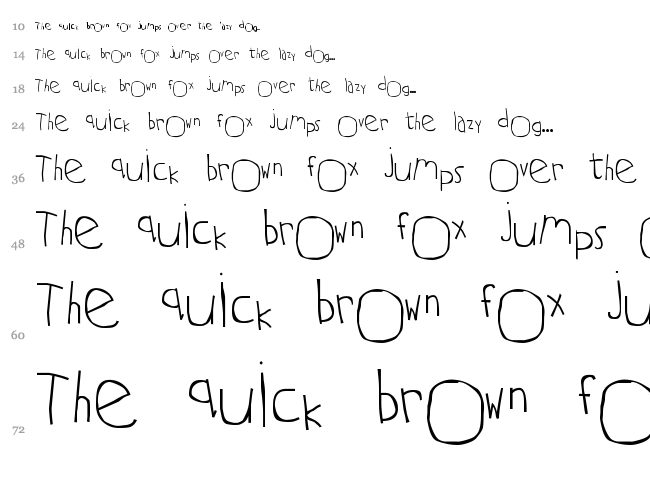 10 The quick brown fox jumps over the lazy dog...
14 The quick brown fox jumps over the lazy dog...
18 The quick brown fox jumps over the lazy dog...
24 The quick brown fox jumps over the lazy dog...
36 The quick brown fox jumps over the
48 The quick brown fox jumps o
60 The quick brown fox ju
72 The quick brown fo